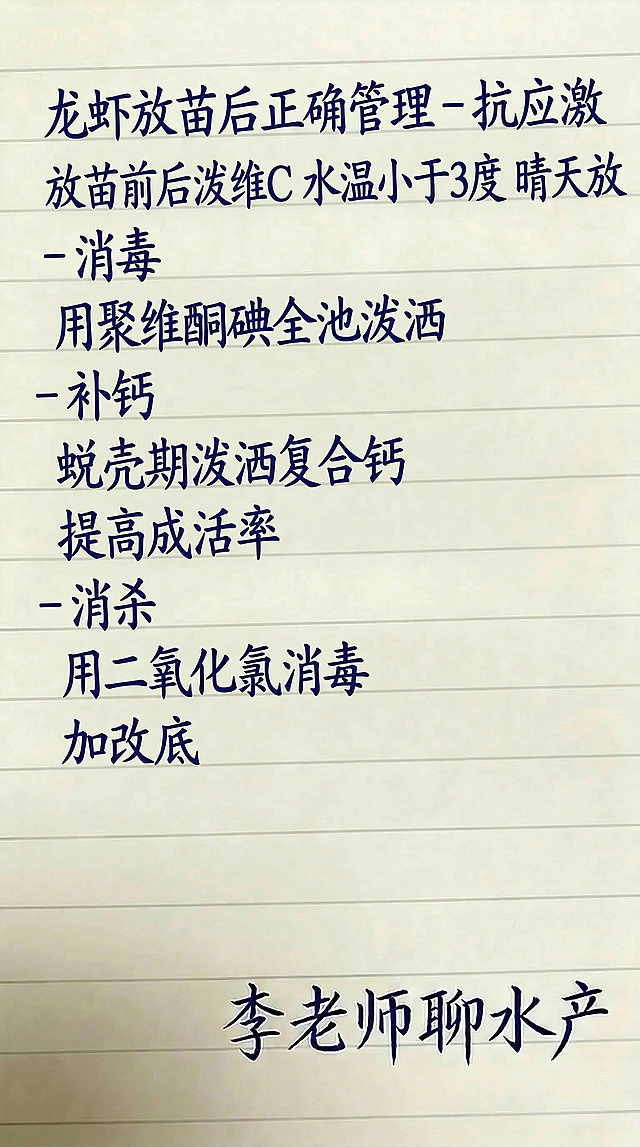 龙虾放苗后正确管理-抗应激
放苗前后泼维C 水温小于3度 晴天放
-消毒
用聚维酮碘全池泼洒
-补钙
蜕壳期泼洒复合钙
提高成活率
-消杀
用二氧化氯消毒
加改底
李老师聊水产